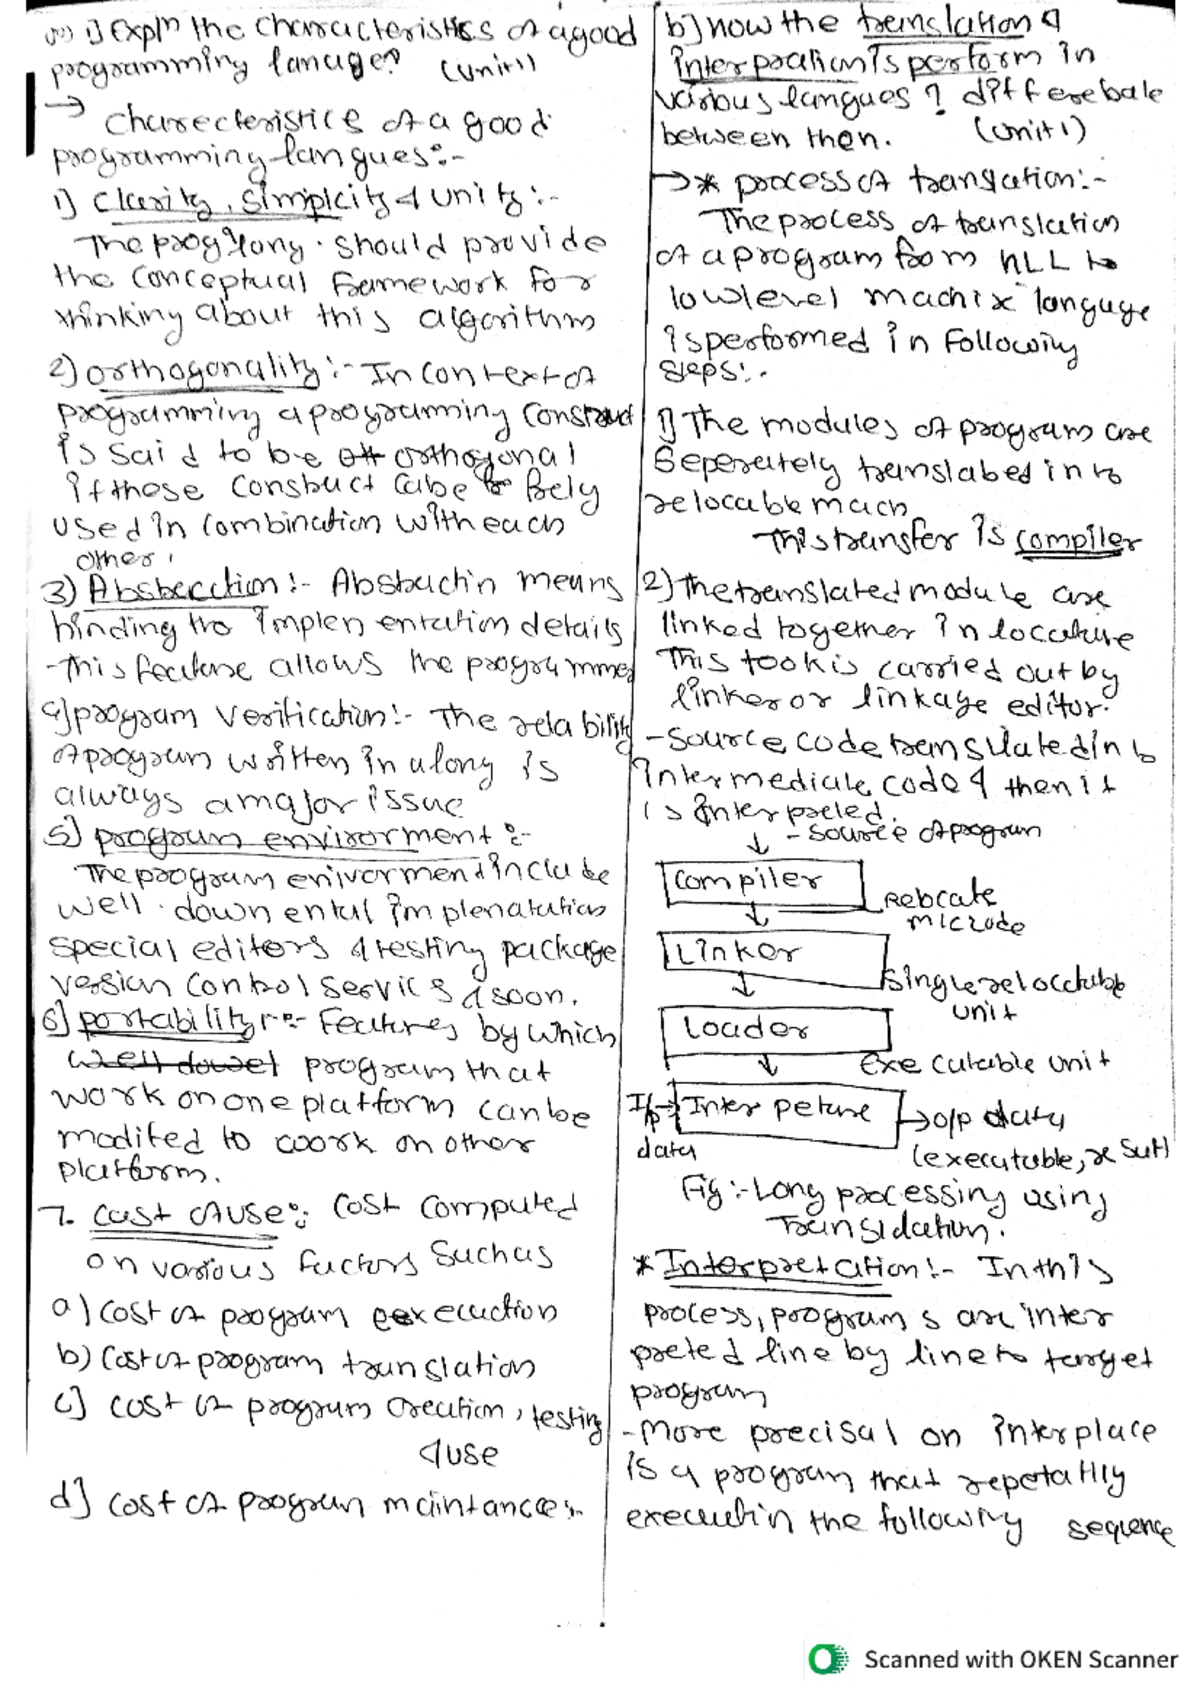 1) Expln the characteristics of a good
programming lanuage? (unit1)
→ Charecteristics of a good
programming langues:-
1) Clarity, Simplcity & Unity:-
The prog long. should provide
the conceptual Framework for
thinking about this algorithm
2) orthogonality:- In context of
programming a programming construct
is said to be orthogonal
if those construct be frely
used in combination with each
other.
3) Abstracction:- Abstractin means
hinding the implementation details
-this feature allows the programmer
4) program verification:- The relability
of program written in a long is
always a major issue
5) program envirorment:-
The program enivorment include
well. implenatation
special editors & testing package
version control servics & soon.
6) portability:- Features by which
program that
work on one platform can be
modifed to work on other
platform.
7. cost of use:: cost computed
on various factors such as
a) cost of program execution
b) cost of program translation
c) cost of program creation, testing
& use
d) cost of program maintances:-
b) how the translation &
interpration is perform in
various langues? differebate
between then. (unit1)
→* process of translation:-
The process of translation
of a program from HLL to
lowlevel machix languge
is performed in following
steps:-
1) The modules of program are
Seperately translated into
relocable mach
This transfer is compiler
2) The translated module are
linked together in locature
This took is carried out by
linker or linkage editor.
-source code translated into
intermediate code & then it
is interpreted.
- source of program
Compiler
Relocate
microde
Linker
single relocatable
unit
Loader
Executable unit
I/p
data
Inter peture
→ o/p data
(executable, result)
Fig:- Long processing using
Translation.
*Interpretation:- In this
process, program s are inter
preted line by line to target
program
-More precisal on interplace
is a program that repetatlly
executin the following sequence
Scanned with OKEN Scanner